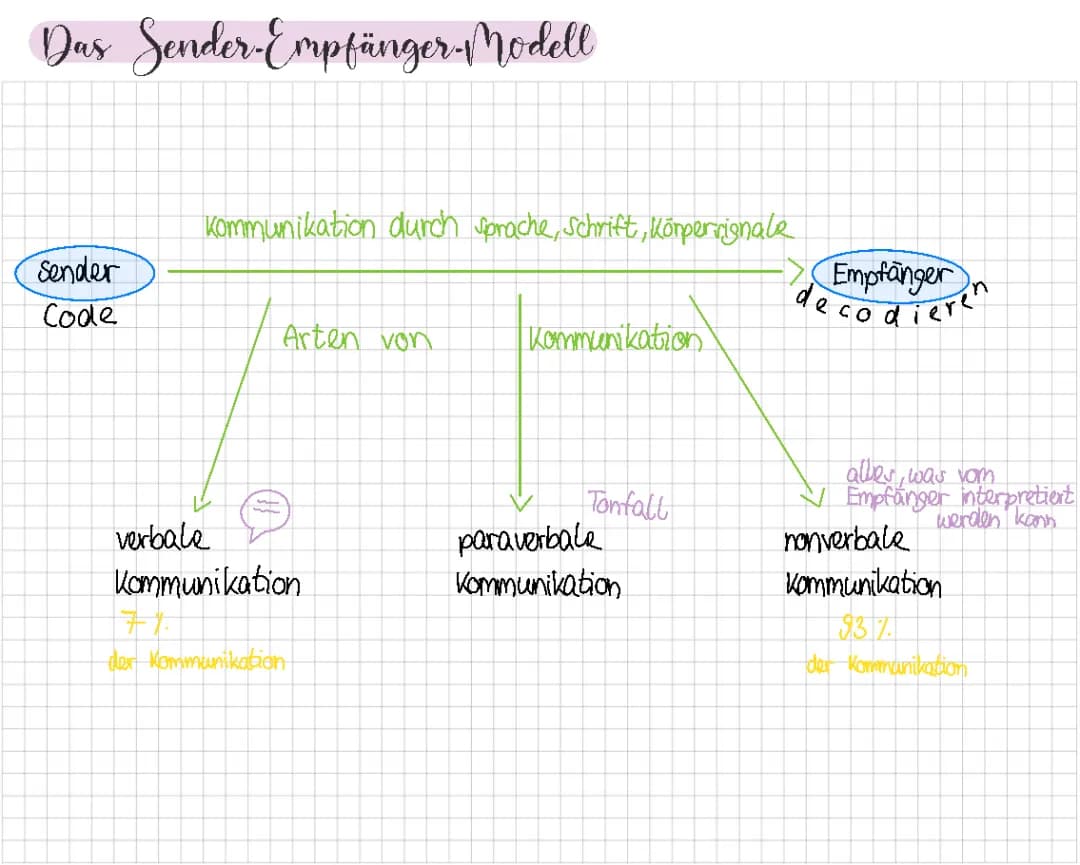 Das Sender-Empfänger-Modell
Kommunikation durch Sprache, Schrift, Körpersignale
Sender
Empfänger
Code
decodieren
Arten von Kommunikation
alles, was vom
Empfänger interpretiert
werden kann
Tonfall
verbale
Kommunikation
7 %
der Kommunikation
paraverbale
Kommunikation
nonverbale
Kommunikation
93 %
der Kommunikation